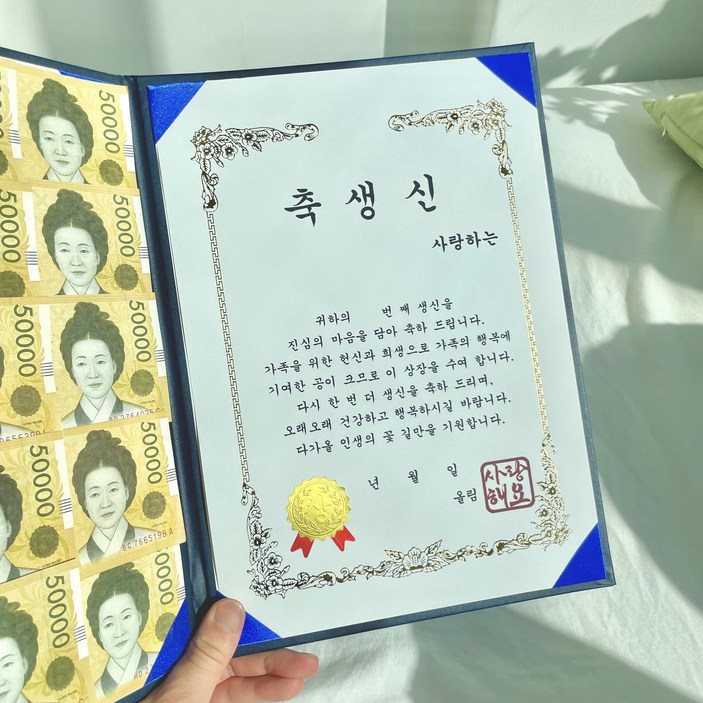 50000
50000
50000
50000
0000
BC 7665198 A
축 생 신
사랑하는
귀하의 번 째 생신을
진심의 마음을 담아 축하 드립니다.
가족을 위한 헌신과 희생으로 가족의 행복에
기여한 공이 크므로 이 상장을 수여 합니다.
다시 한 번 더 생신을 축하 드리며,
오래오래 건강하고 행복하시길 바랍니다.
다가올 인생의 꽃 길만을 기원합니다.
년 월 일
올림
사랑
해요